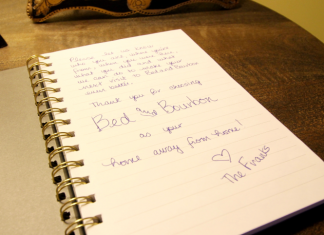 Please let us know
who you are, where you're
from, when you were here,
what you did and what
we can do to make your
next visit to Bed and Bourbon
even better.
Thank you for choosing
Bed and Bourbon
as your
home away from home!
The Finau's